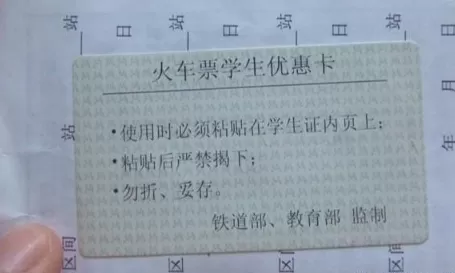 火车票学生优惠卡
·使用时必须粘贴在学生证内页上；
·粘贴后严禁揭下；
·勿折、妥存。
铁道部、教育部 监制
站
日
站
日
站
日
站
月
年
区间
区
区间